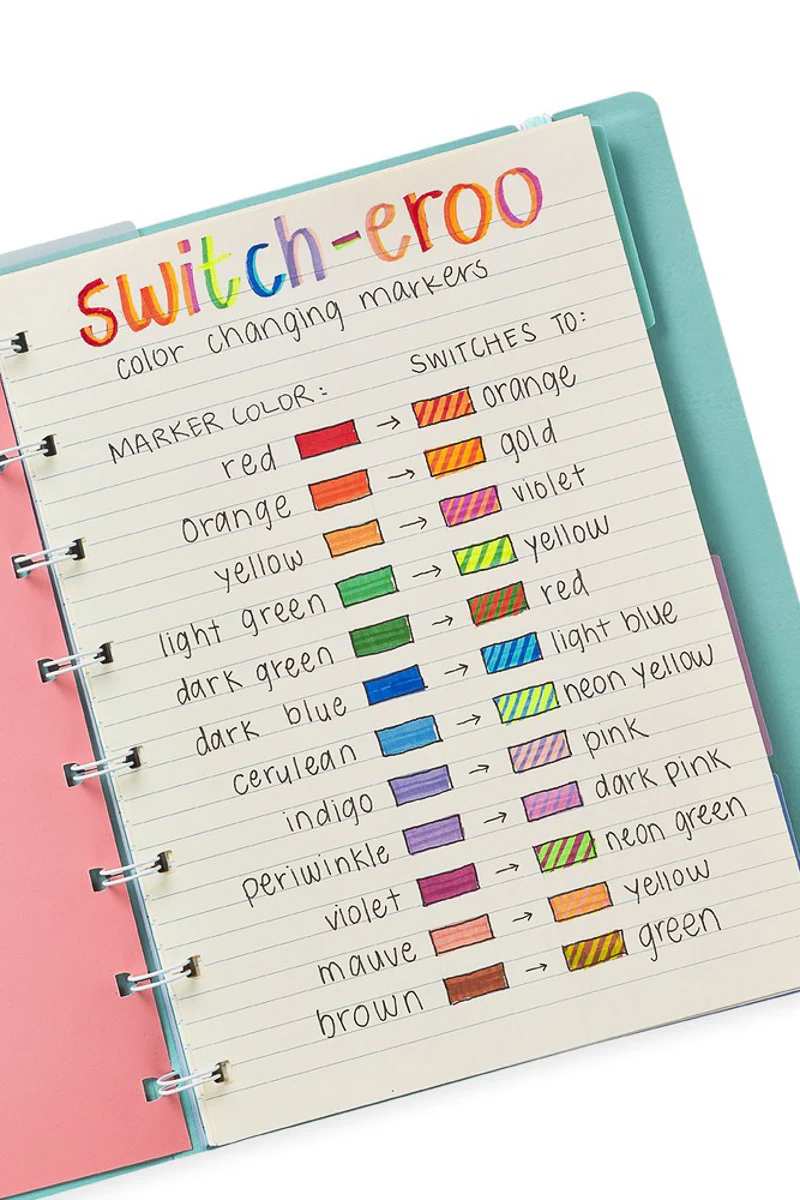 switch-eroo
color changing markers
MARKER COLOR: SWITCHES TO:
red → orange
orange → gold
yellow → violet
light green → yellow
dark green → red
dark blue → light blue
cerulean → neon yellow
indigo → pink
periwinkle → dark pink
violet → neon green
mauve → yellow
brown → green